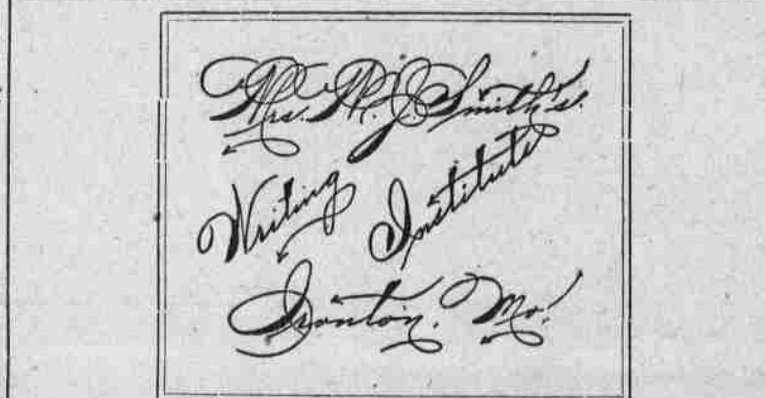 Mrs. M. J. Smith's.
Writing Institute
Ironton, Mo.